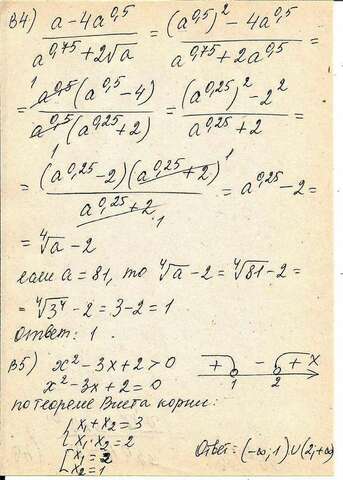 В4) (a - 4a^0,5)/(a^0,75 + 2√a) = ((a^0,5)^2 - 4a^0,5)/(a^0,75 + 2a^0,5) =
= (a^0,5 (a^0,5 - 4))/(a^0,5 (a^0,25 + 2)) = ((a^0,25)^2 - 2^2)/(a^0,25 + 2) =
= ((a^0,25 - 2)(a^0,25 + 2))/(a^0,25 + 2) = a^0,25 - 2 =
= ⁴√a - 2
если a = 81, то ⁴√a - 2 = ⁴√81 - 2 =
= ⁴√3^4 - 2 = 3 - 2 = 1
Ответ: 1.
В5) x² - 3x + 2 > 0
x² - 3x + 2 = 0
+ - + x
1 2
по теореме Виета корни:
{x₁ + x₂ = 3
{x₁ · x₂ = 2
[x₁ = 2
[x₂ = 1
Ответ: (-∞; 1) ∪ (2; +∞)